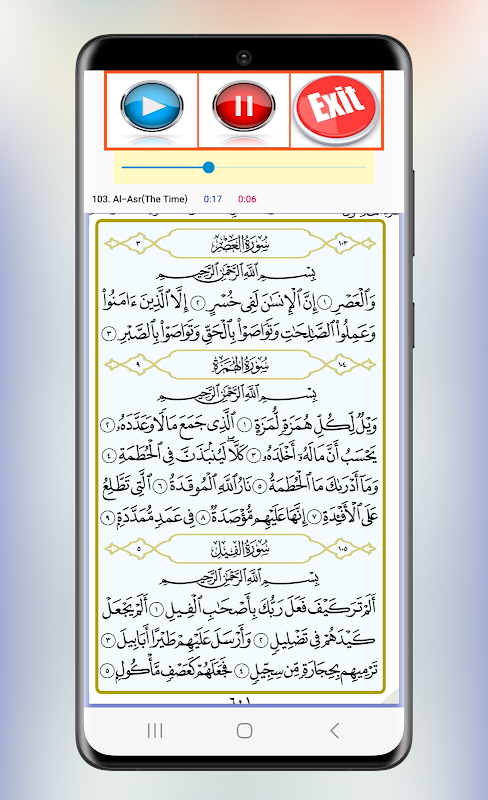 Exit
103. Al-Asr(The Time) 0:17 0:06
٣ سُورَةُ العَصْرِ ١٠٣
بِسْمِ ٱللَّهِ ٱلرَّحْمَٰنِ ٱلرَّحِيمِ
وَٱلْعَصْرِ ١ إِنَّ ٱلْإِنسَٰنَ لَفِى خُسْرٍ ٢ إِلَّا ٱلَّذِينَ ءَامَنُوا۟
وَعَمِلُوا۟ ٱلصَّٰلِحَٰتِ وَتَوَاصَوْا۟ بِٱلْحَقِّ وَتَوَاصَوْا۟ بِٱلصَّبْرِ ٣
٩ سُورَةُ الهُمَزَةِ ١٠٤
بِسْمِ ٱللَّهِ ٱلرَّحْمَٰنِ ٱلرَّحِيمِ
وَيْلٌ لِّكُلِّ هُمَزَةٍ لُّمَزَةٍ ١ ٱلَّذِى جَمَعَ مَالًا وَعَدَّدَهُۥ ٢
يَحْسَبُ أَنَّ مَالَهُۥٓ أَخْلَدَهُۥ ٣ كَلَّا ۖ لَيُنۢبَذَنَّ فِى ٱلْحُطَمَةِ ٤
وَمَآ أَدْرَىٰكَ مَا ٱلْحُطَمَةُ ٥ نَارُ ٱللَّهِ ٱلْمُوقَدَةُ ٦ ٱلَّتِى تَطَّلِعُ
عَلَى ٱلْأَفْـِٔدَةِ ٧ إِنَّهَا عَلَيْهِم مُّؤْصَدَةٌ ٨ فِى عَمَدٍ مُّمَدَّدَةٍۭ ٩
٥ سُورَةُ الفِيلِ ١٠٥
بِسْمِ ٱللَّهِ ٱلرَّحْمَٰنِ ٱلرَّحِيمِ
أَلَمْ تَرَ كَيْفَ فَعَلَ رَبُّكَ بِأَصْحَٰبِ ٱلْفِيلِ ١ أَلَمْ يَجْعَلْ
كَيْدَهُمْ فِى تَضْلِيلٍ ٢ وَأَرْسَلَ عَلَيْهِمْ طَيْرًا أَبَابِيلَ ٣
تَرْمِيهِم بِحِجَارَةٍ مِّن سِجِّيلٍ ٤ فَجَعَلَهُمْ كَعَصْفٍ مَّأْكُولٍۭ ٥
٦٠١